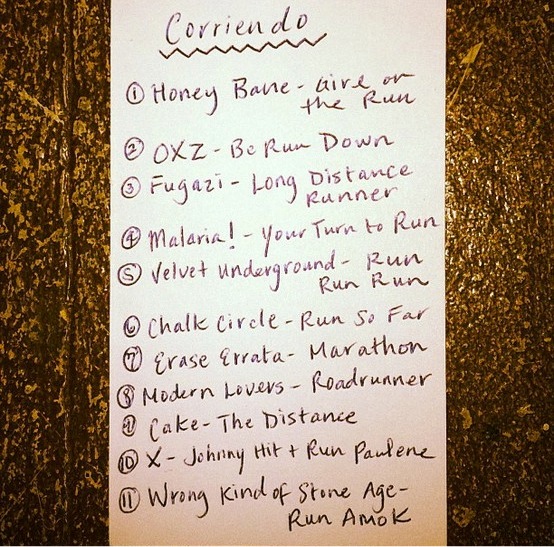 Corriendo
① Honey Bane - Girl on
the Run
② OXZ - Be Run Down
③ Fugazi - Long Distance
Runner
④ Malaria! - Your Turn to Run
⑤ Velvet Underground - Run
Run Run
⑥ Chalk Circle - Run So Far
⑦ Erase Errata - Marathon
⑧ Modern Lovers - Roadrunner
⑨ Cake - The Distance
⑩ X - Johnny Hit + Run Paulene
⑪ Wrong Kind of Stone Age -
Run Amok